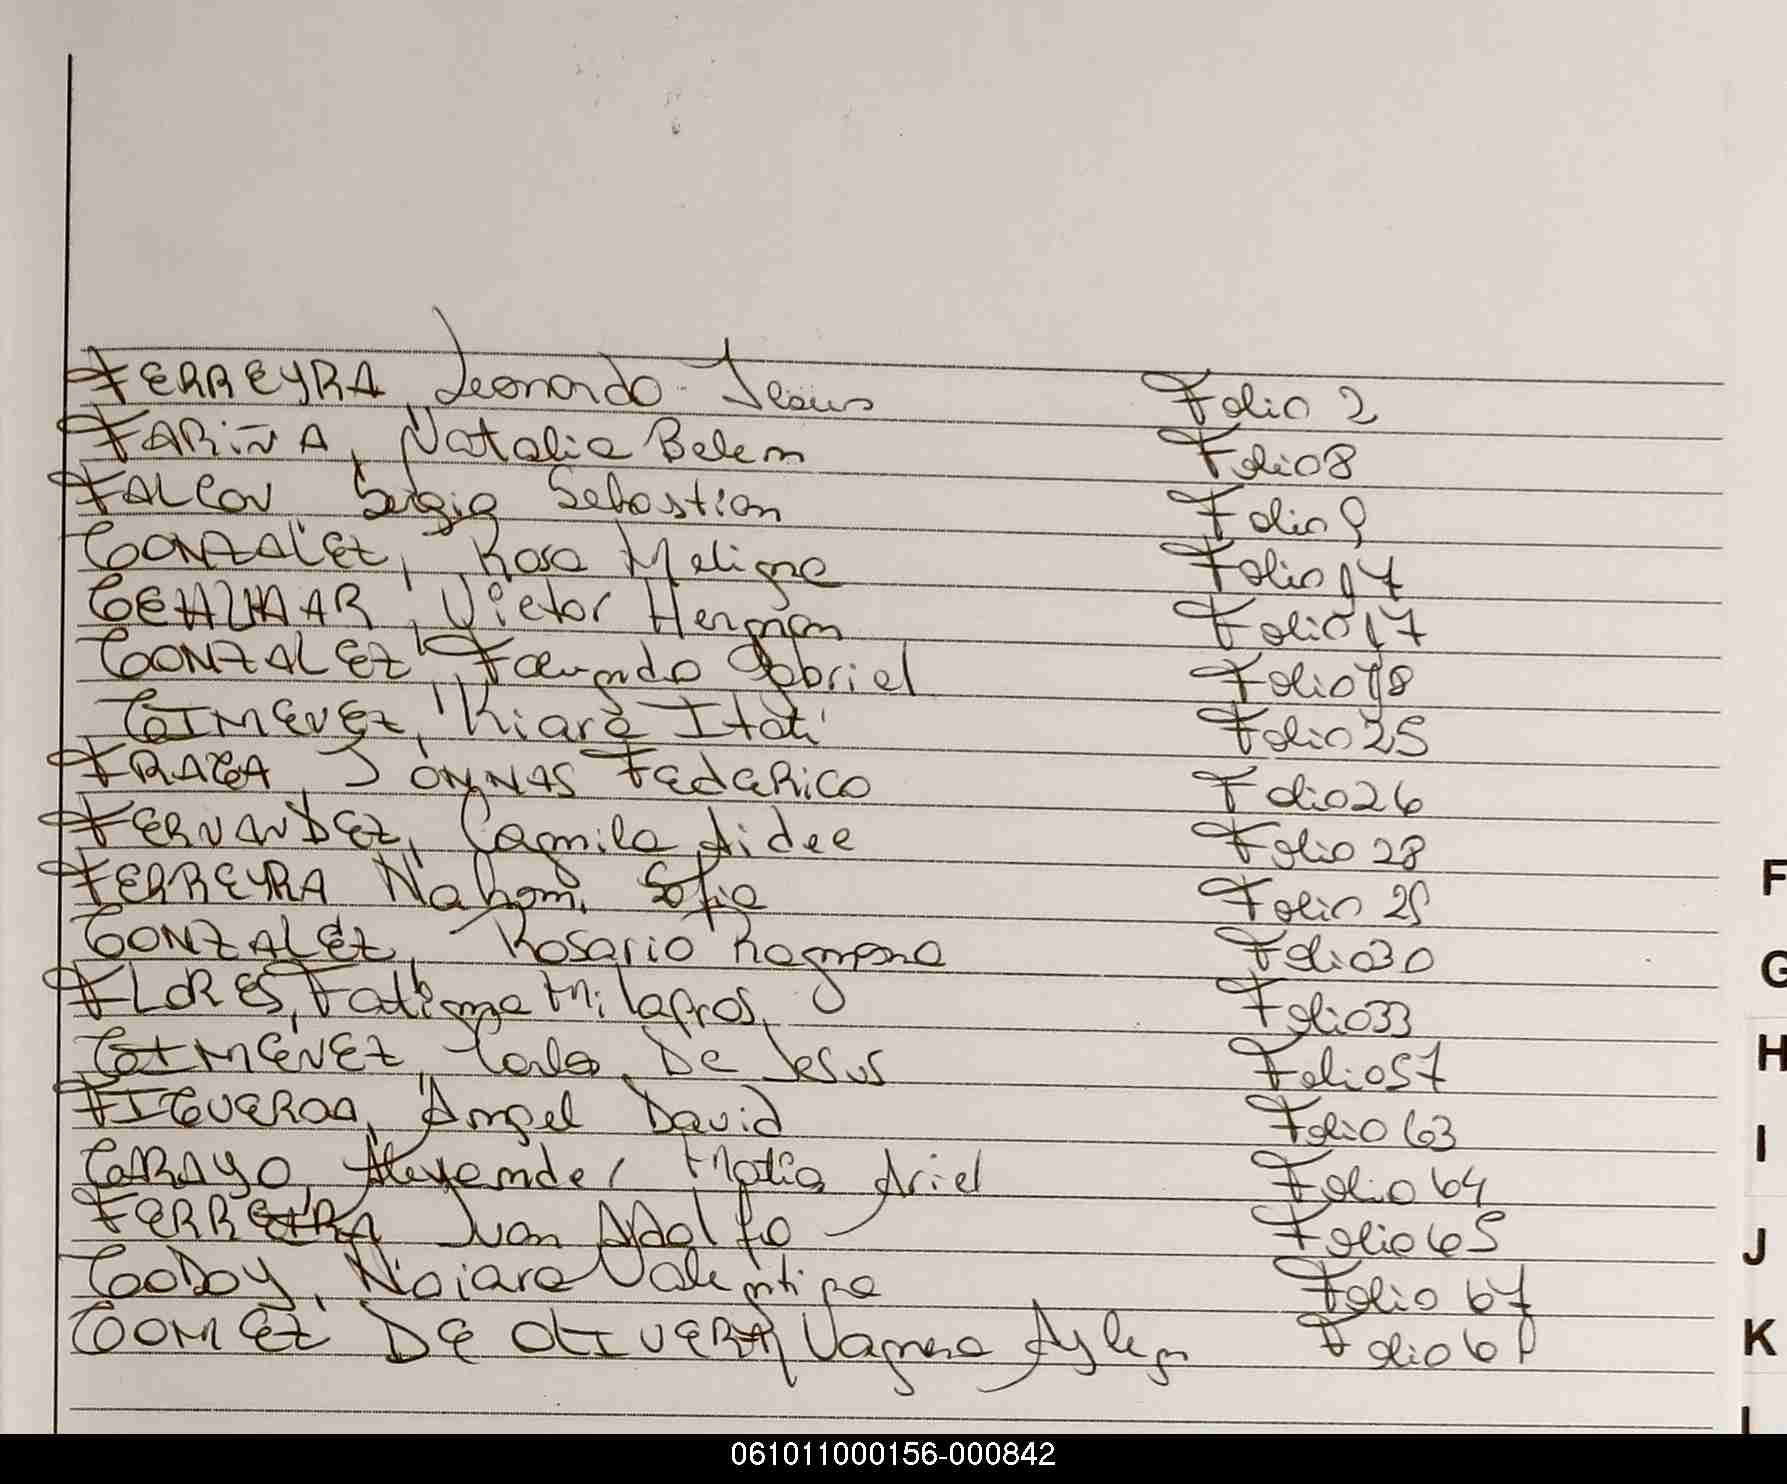 FERREYRA, Leonardo Jesus Folio 2
FARIÑA, Natalia Belem Folio 8
FALCON Sergio Sebastian Folio 9
GONZALEZ, Rosa Folio 17
Victor Hernan Folio 17
GONZALEZ, Facundo Gabriel Folio 18
GIMENEZ, Kiara Itati Folio 25
FRAGA, JONNAS Federico Folio 26
FERNANDEZ, Camila Aidee Folio 28
FERREYRA Nahomi Sofia Folio 29
GONZALEZ, Rosario Romana Folio 30
FLORES, Fatima Milagros Folio 33
GIMENEZ, De Jesus Folio 57
FIGUEROA, Angel David Folio 63
GARAYO, Alexander Matia Ariel Folio 64
FERREIRA Juan Adolfo Folio 65
GODOY, Naiara Valentina Folio 67
GOMEZ DE OLIVERA, Aylen Folio
F
G
H
I
J
K
L
061011000156-000842